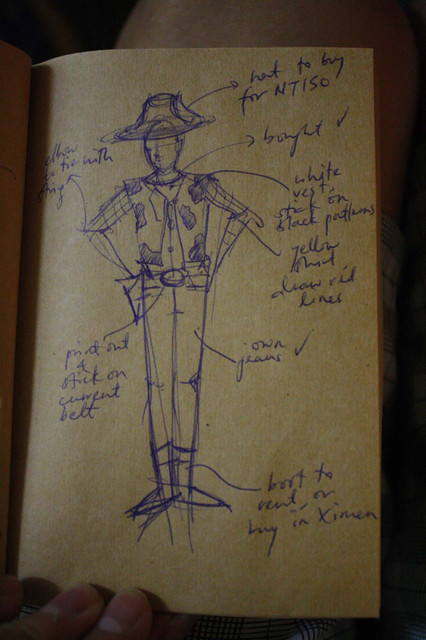 hat to buy
for NT150
bought ✓
elbow
to tie with
string
white
vest,
stick on
black patterns
yellow
shirt
draw red
lines
print out
&
stick on
current
belt
own
jeans ✓
boot to
rent, or
buy in Ximen